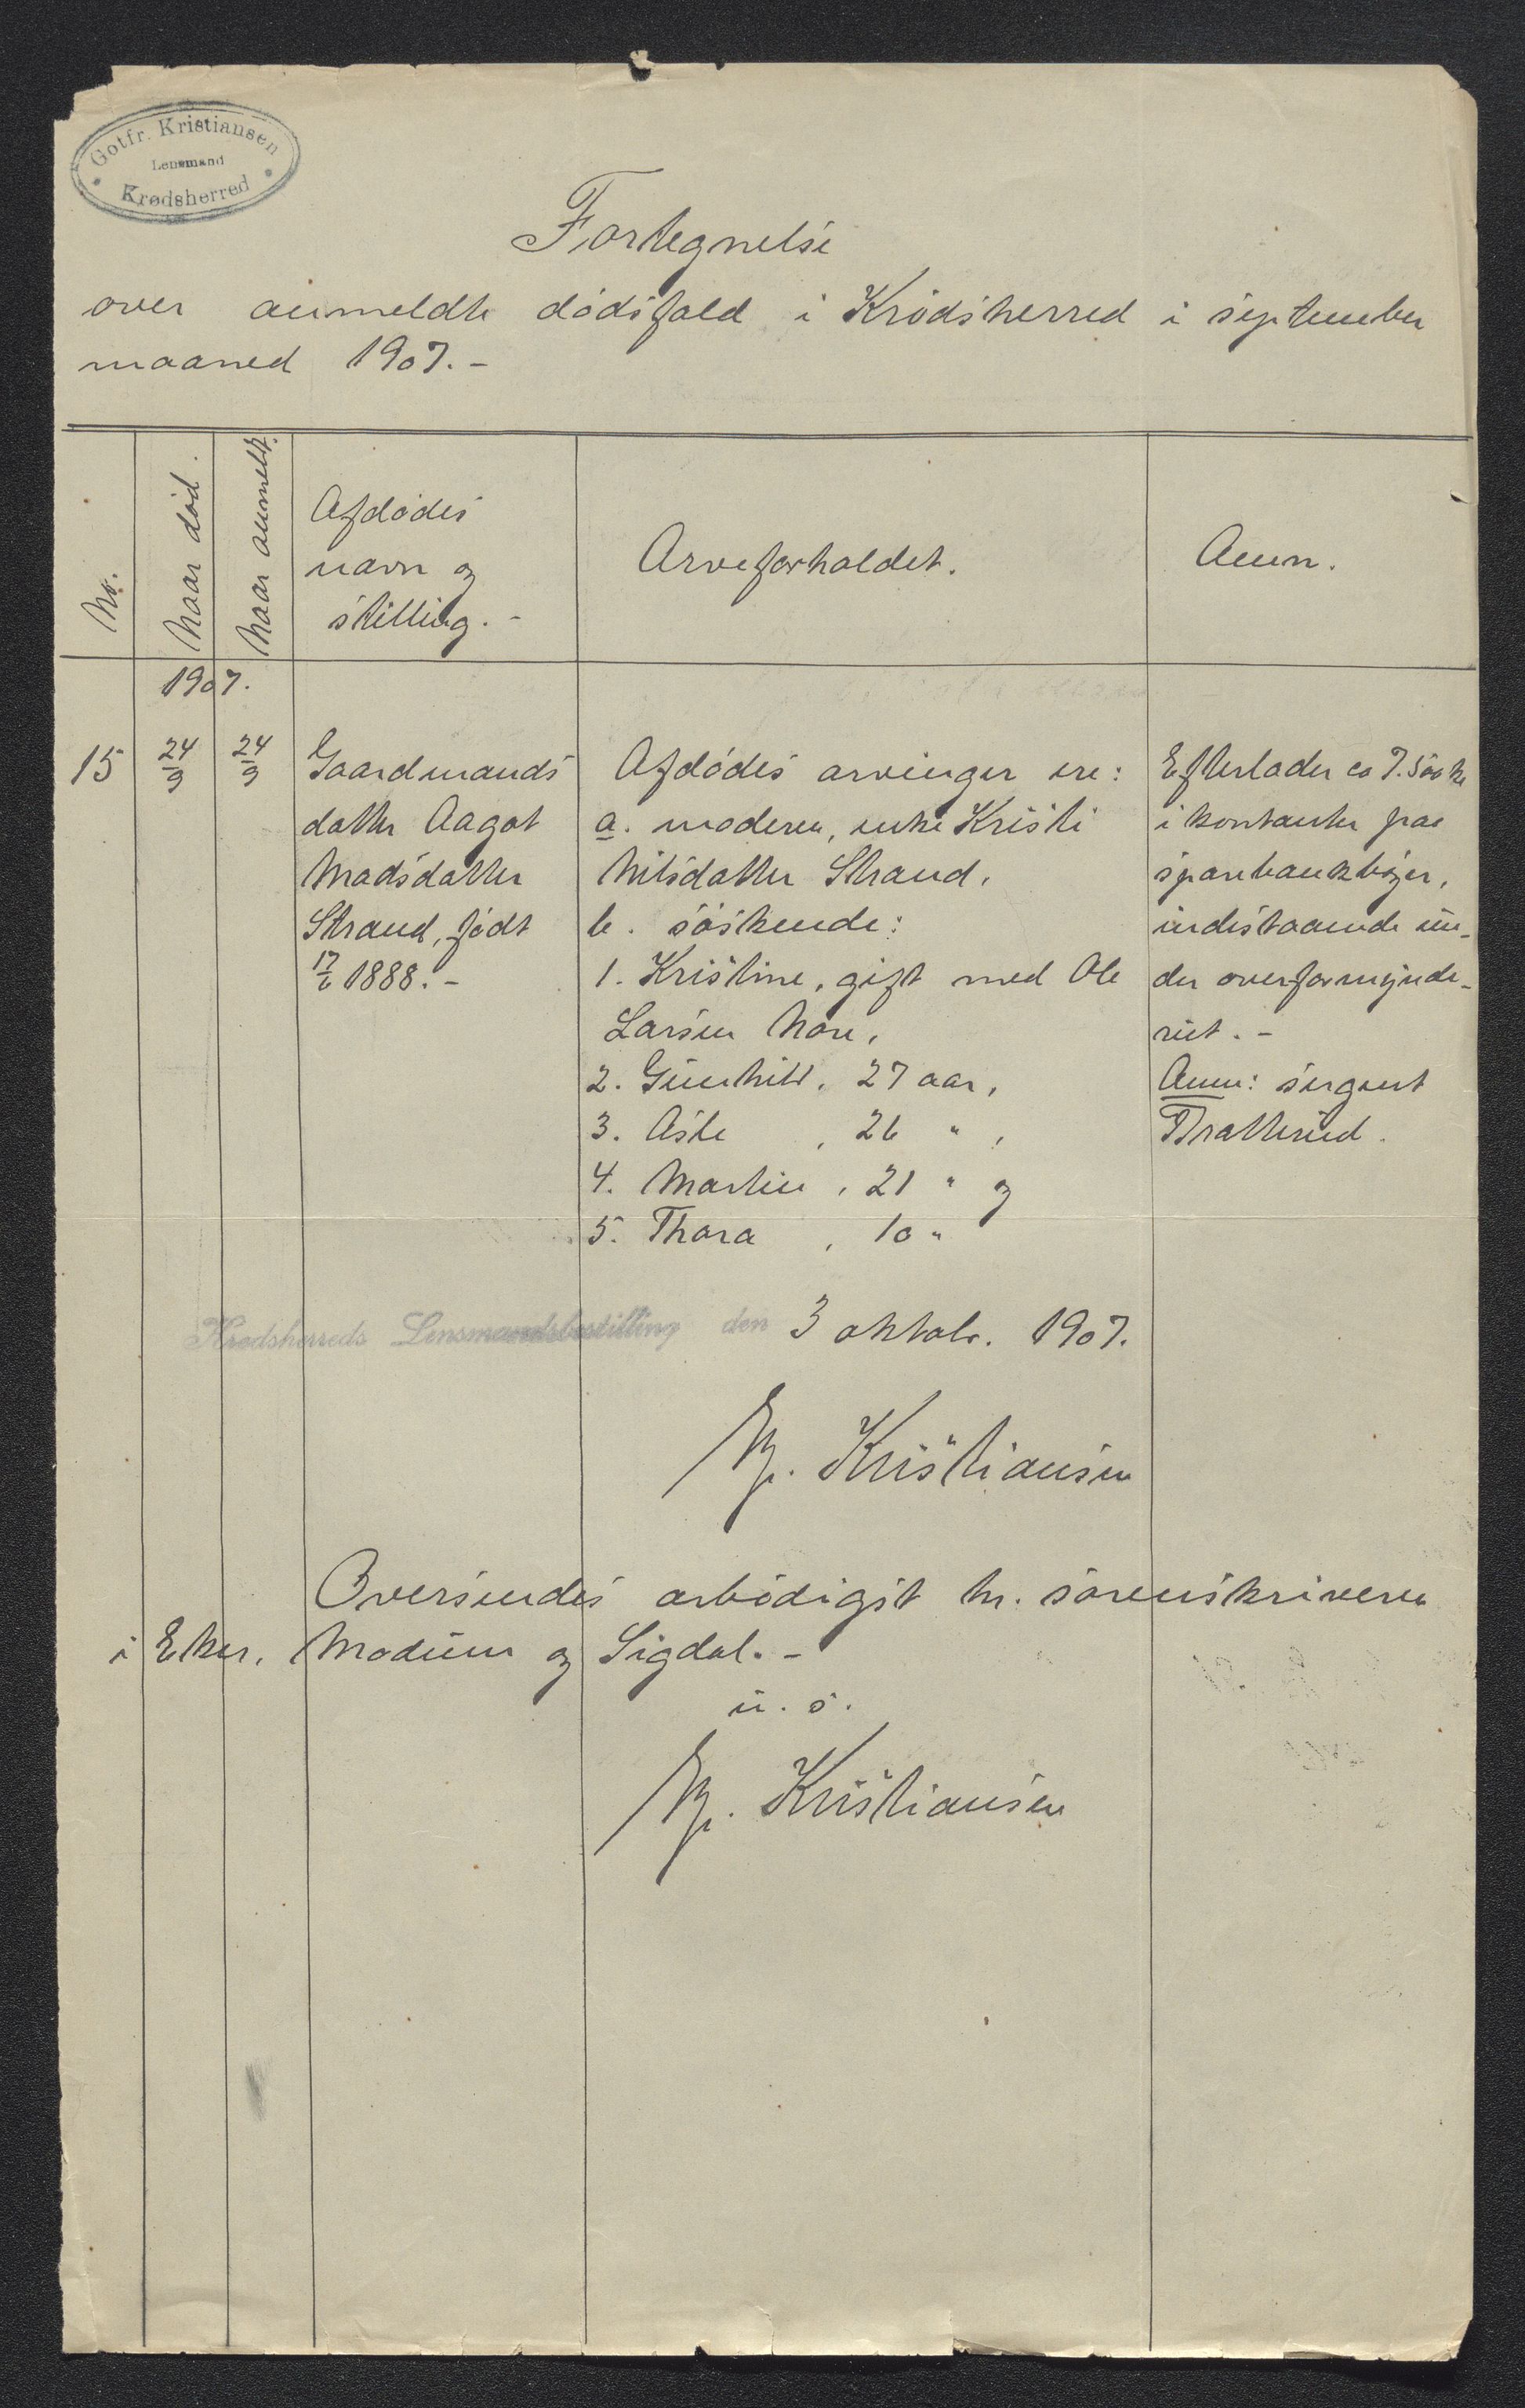 Gotfr. Kristiansen
Lensmand
Krødsherred
Fortegnelse
over anmeldte dødsfald i Krødsherred i september
maaned 1907.-
No.
Naar død.
Naar anmeldt.
Afdødes
navn og
stilling.-
Arveforholdet.
Anm.
1907.
15
24/9
24/9
Gaardmands
datter Aagot
Madsdatter
Strand, født
17/6 1888.-
Afdødes arvinger ere:
a. moderen, enke Kristi
Nilsdatter Strand,
b. søskende:
1. Kristine, gift med Ole
Larsen Nore,
2. Gunhild, 27 aar,
3. Asle , 26 " ,
4. Martin , 21 " og
5. Thora , 10 "
Efterlader ca 7.500 kr
i kontanter paa
sparebankbøger,
indestaaende un-
der overformynde-
riet.-
Anm: sergent
Bratterud.
Krødsherreds Lensmandsbestilling den 3 oktobr. 1907.
Kristiansen
Oversendes ærbødigst hr. sorenskriveren
i Eker, Modum og Sigdal.-
u. s.
Kristiansen